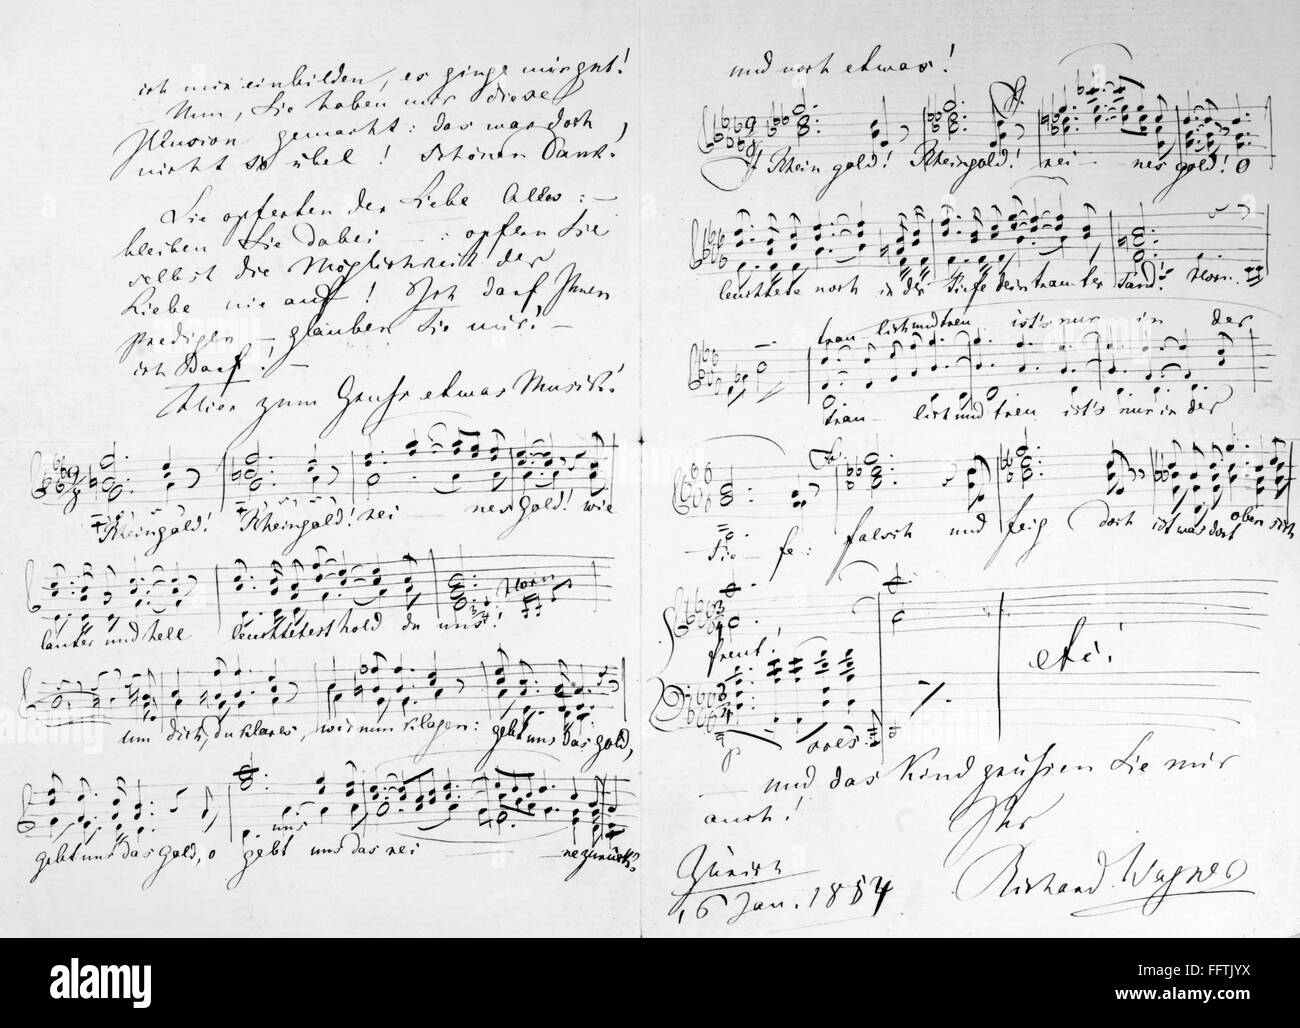 ich mir einbilden, es ginge mir gut!
– Nun, Sie haben mir diese
Illusion gemacht: das war doch
nicht so übel! Schönen Dank!
Sie opferten der Liebe Alles: –
bleiben Sie dabei – : opfern Sie
selbst die Möglichkeit der
Liebe nie auf! Ich darf Ihnen
predigen – glauben Sie mir! –
ich darf! –
Hier zum Gruss etwas Musik!
Rheingold! Rheingold! rei – nes Gold! wie
lauter und hell leuchtetest hold du uns! Horn
um dich, du klares, wir nun klagen: gebt uns das Gold,
gebt uns das Gold, o gebt uns das rei – ne zurück!
uns
und noch etwas!
Rheingold! Rheingold! rei – nes Gold! O
leuchtete noch in der Tiefe dein traut'er Tand! Horn.
traulich und treu ist's nur in der
trau – lich und treu ist's nur in der
Tie – fe: falsch und feig doch ist was dort oben sich
freut!
etc!
p cres:
– und das Kind grüssen Sie mir
auch!
Ihr
Zürich
16 Jan. 1854
Richard Wagner
alamy
Image ID: FFTJYX
www.alamy.com